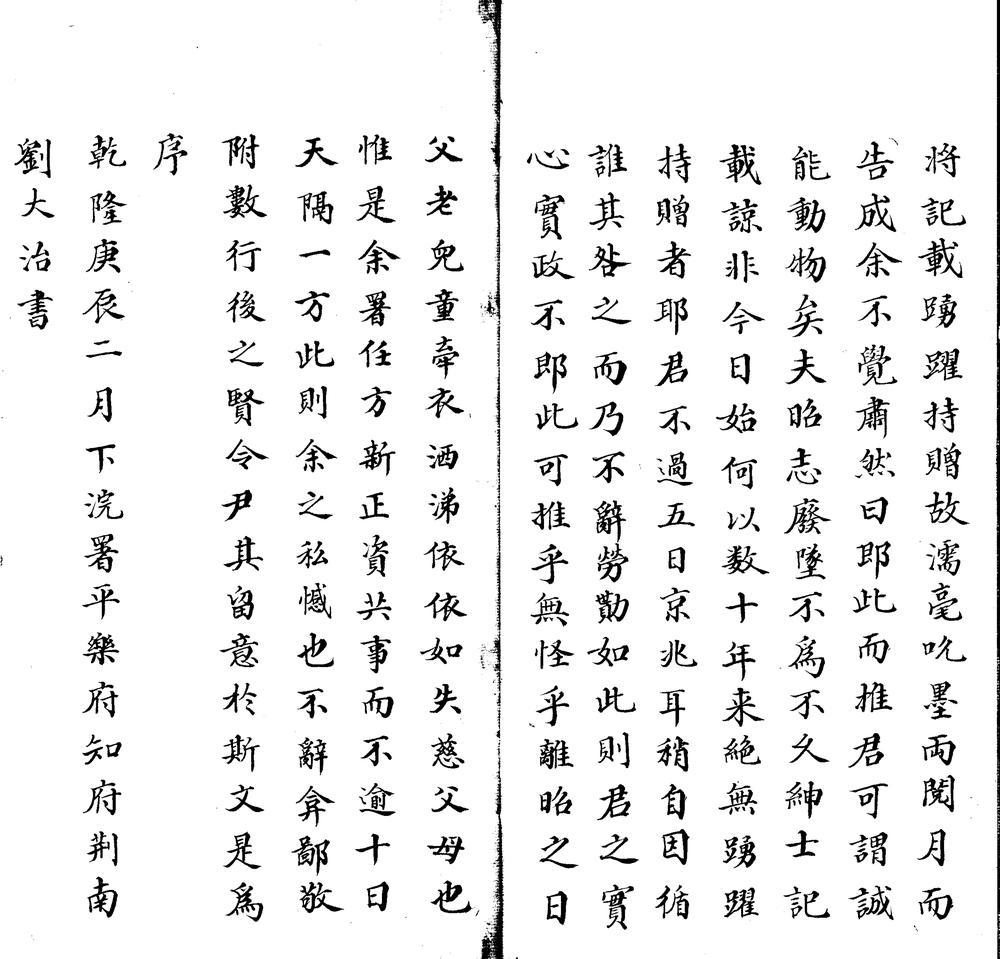 將記載踴躍持贈故濡毫吮墨両閱月而
告成余不覺肅然曰即此而推君可謂誠
能動物矣夫昭志廢墜不為不久紳士記
載諒非今日始何以数十年来絶無踴躍
持贈者耶君不過五日京兆耳稍自因循
誰其咎之而乃不辭勞勩如此則君之實
心實政不即此可推乎無怪乎離昭之日
父老兒童牽衣洒涕依依如失慈父母也
惟是余署任方新正資共事而不逾十日
天隔一方此則余之私憾也不辭弇鄙敬
附數行後之賢令尹其留意於斯文是為
序
乾隆庚辰二月下浣署平樂府知府荆南
劉大治書